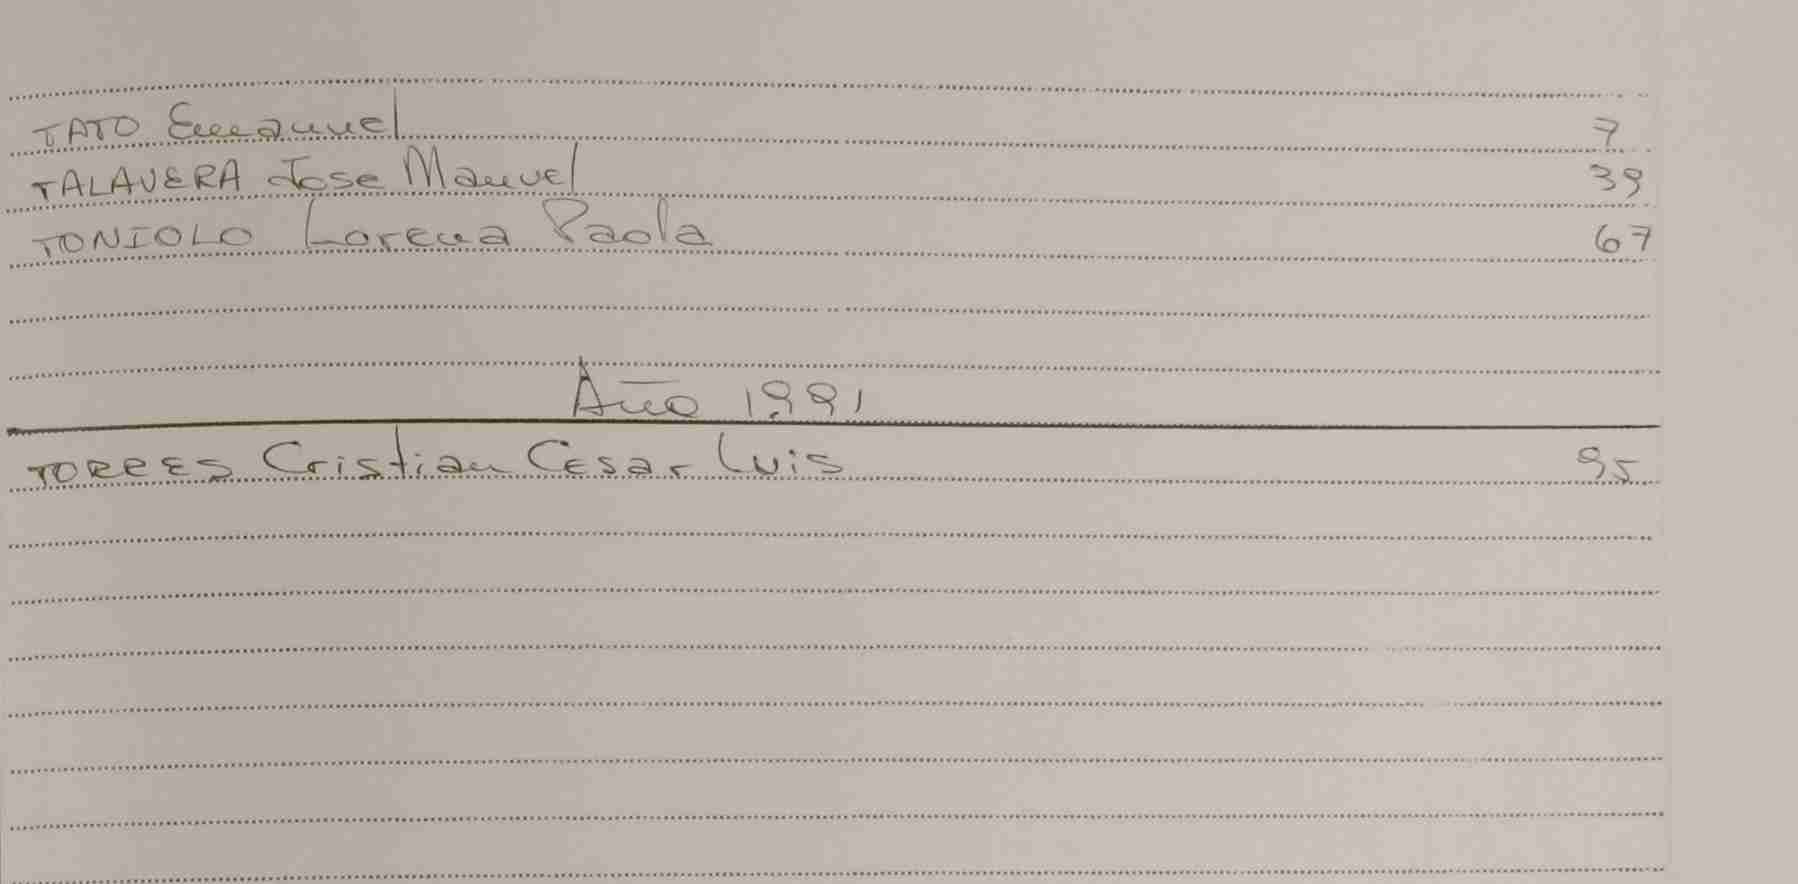 TATO Emanuel 7
TALAVERA Jose Manuel 39
TONIOLO Lorena Paola 67
Año 1991
TORRES Cristian Cesar Luis 95